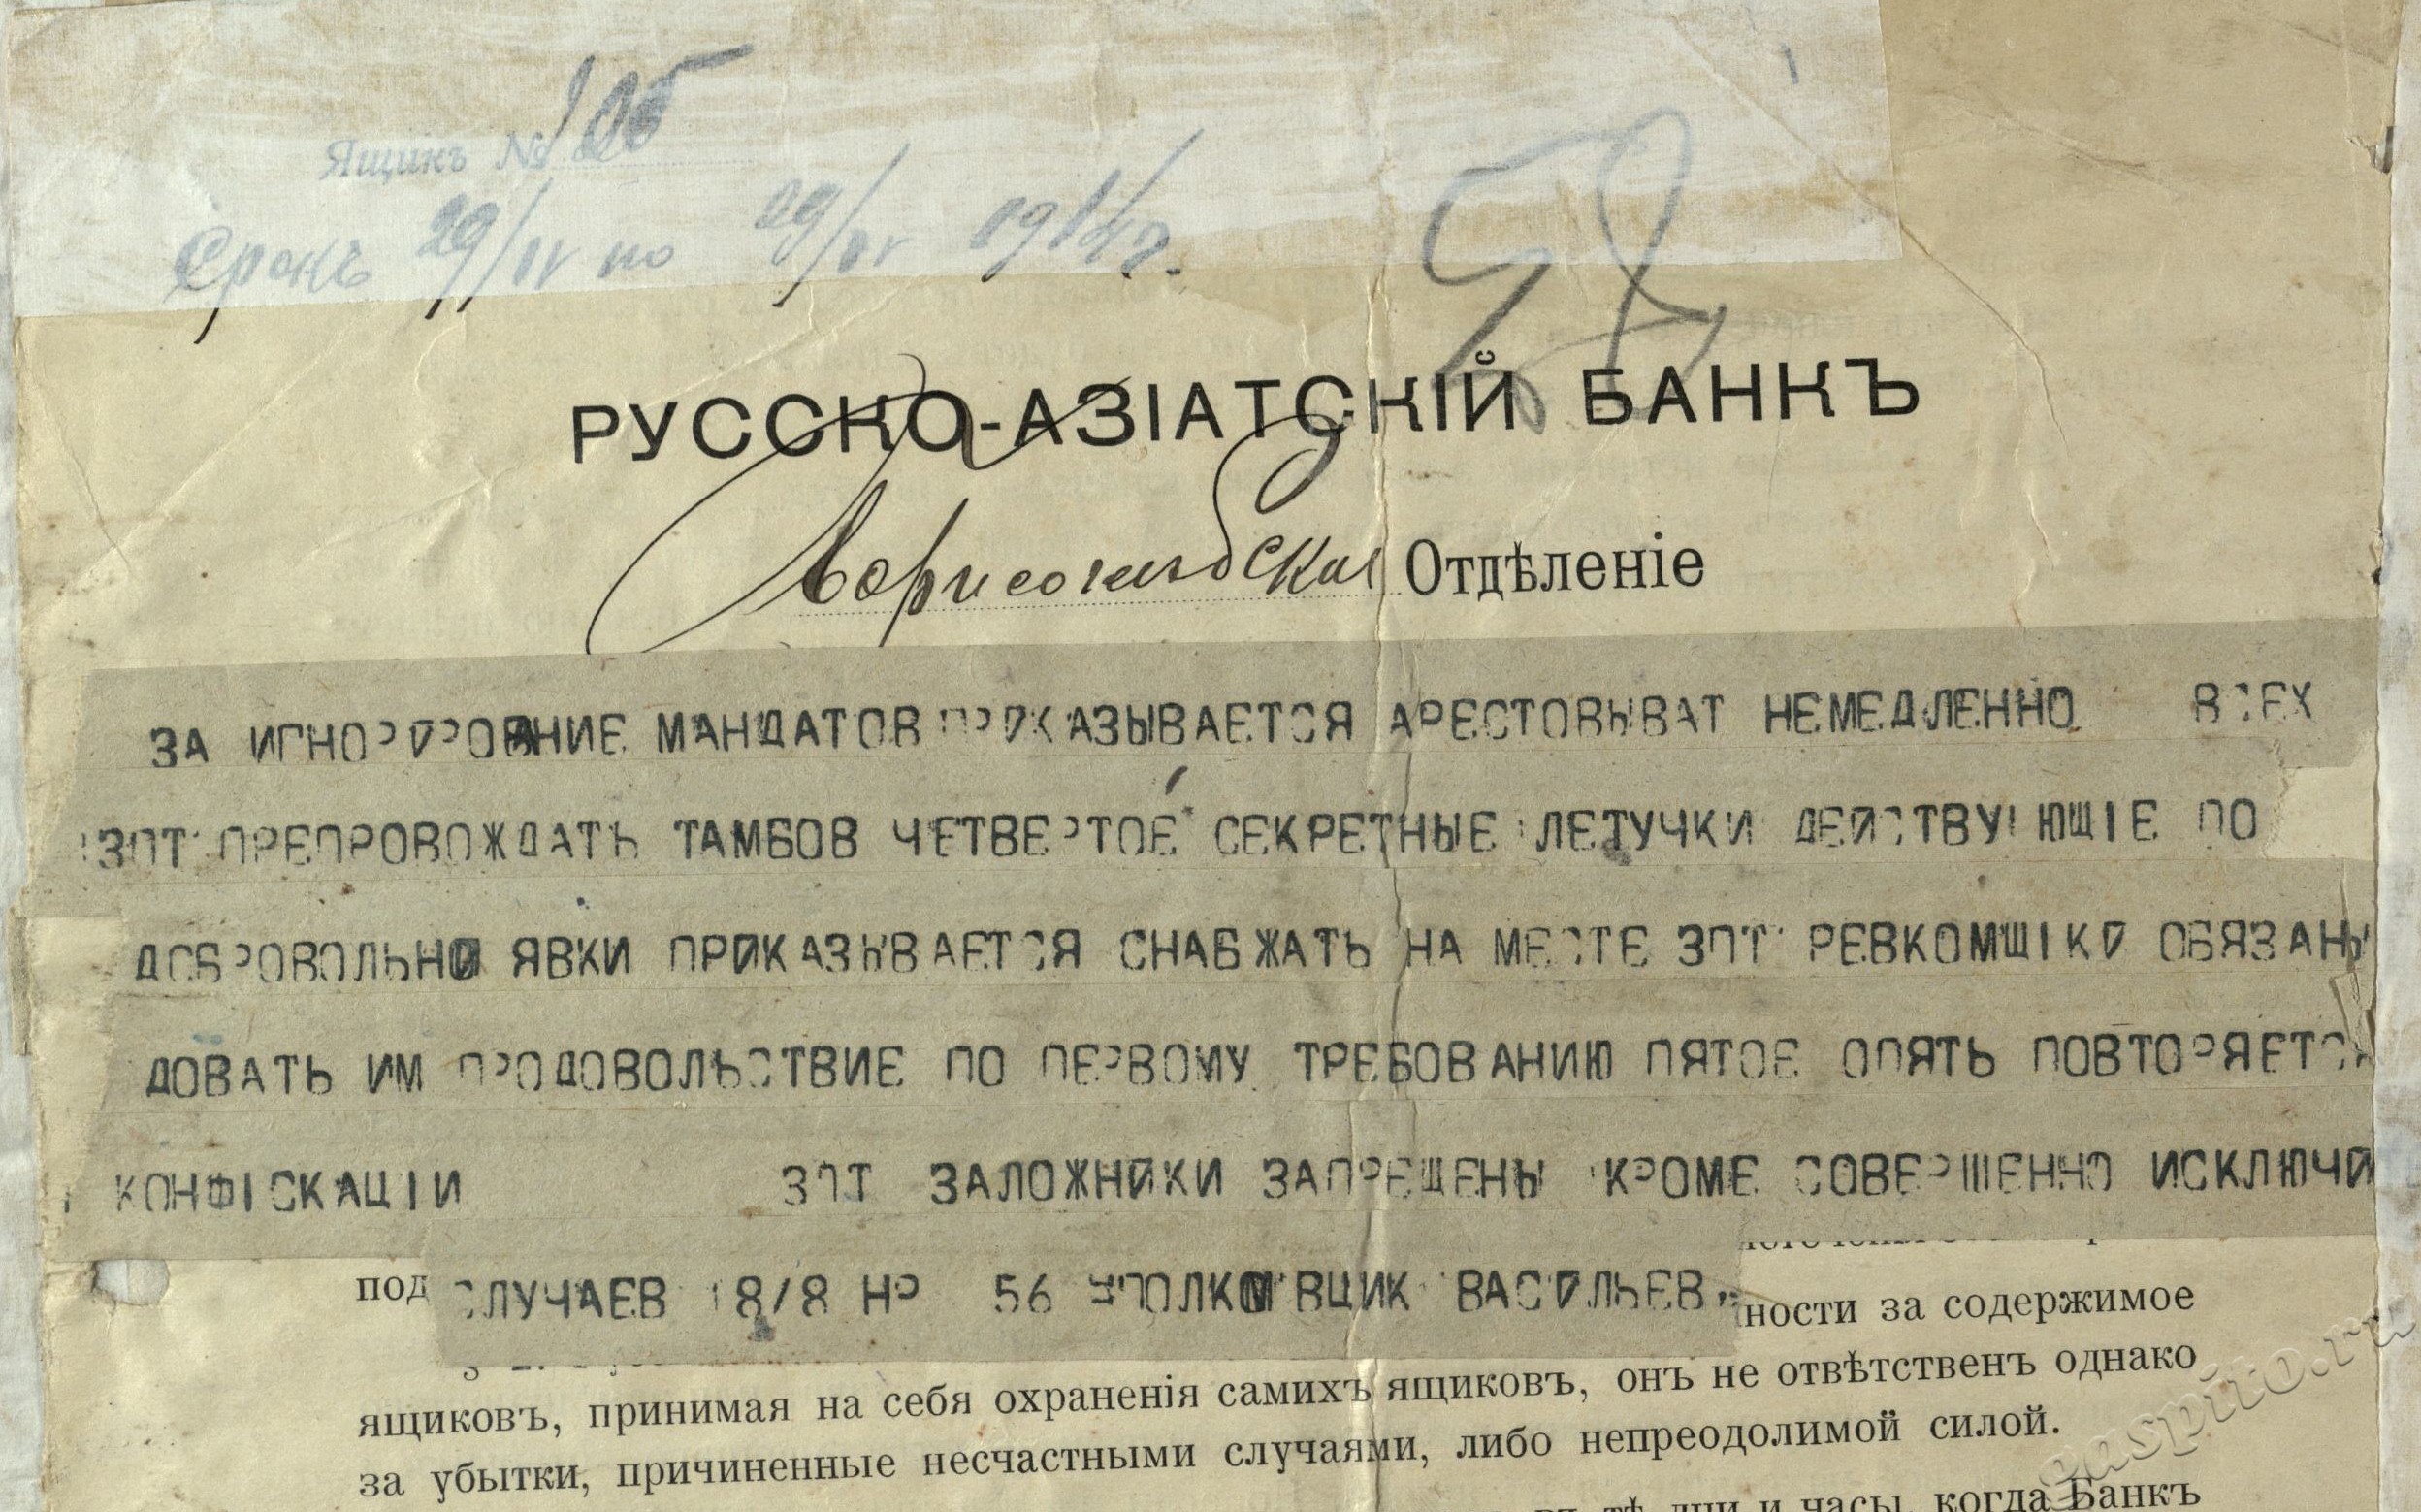 Ящикъ № 105
Срокъ 29/IV по 29/IV 1914 г.
58
РУССКО-АЗІАТСКІЙ БАНКЪ
Борисоглѣбское Отдѣленіе
ЗА ИГНОРИРОВАНИЕ МАНДАТОВ ПРИКАЗЫВАЕТСЯ АРЕСТОВЫВАТ НЕМЕДЛЕННО ВСЕХ
ЗПТ ПРЕПРОВОЖДАТЬ ТАМБОВ ЧЕТВЕРТОЕ СЕКРЕТНЫЕ ЛЕТУЧКИ ДЕЙСТВУЮЩІЕ ПО
ДОБРОВОЛЬНОЙ ЯВКИ ПРИКАЗЫВАЕТСЯ СНАБЖАТЬ НА МЕСТЕ ЗПТ РЕВКОМЩІКИ ОБЯЗАНЫ
ДОВАТЬ ИМ ПРОДОВОЛЬСТВИЕ ПО ПЕРВОМУ ТРЕБОВАНИЮ ПЯТОЕ ОПЯТЬ ПОВТОРЯЕТСЯ
КОНФІСКАЦІИ ЗПТ ЗАЛОЖНИКИ ЗАПРЕЩЕНЫ КРОМЕ СОВЕРШЕННО ИСКЛЮЧИ
под СЛУЧАЕВ 18/8 НР 56 ВАСИЛЬЕВ ности за содержимое
ящиковъ, принимая на себя охраненія самихъ ящиковъ, онъ не отвѣтственъ однако
за убытки, причиненные несчастными случаями, либо непреодолимой силой.
тѣ дни и часы, когда Банкъ
gaspito.ru